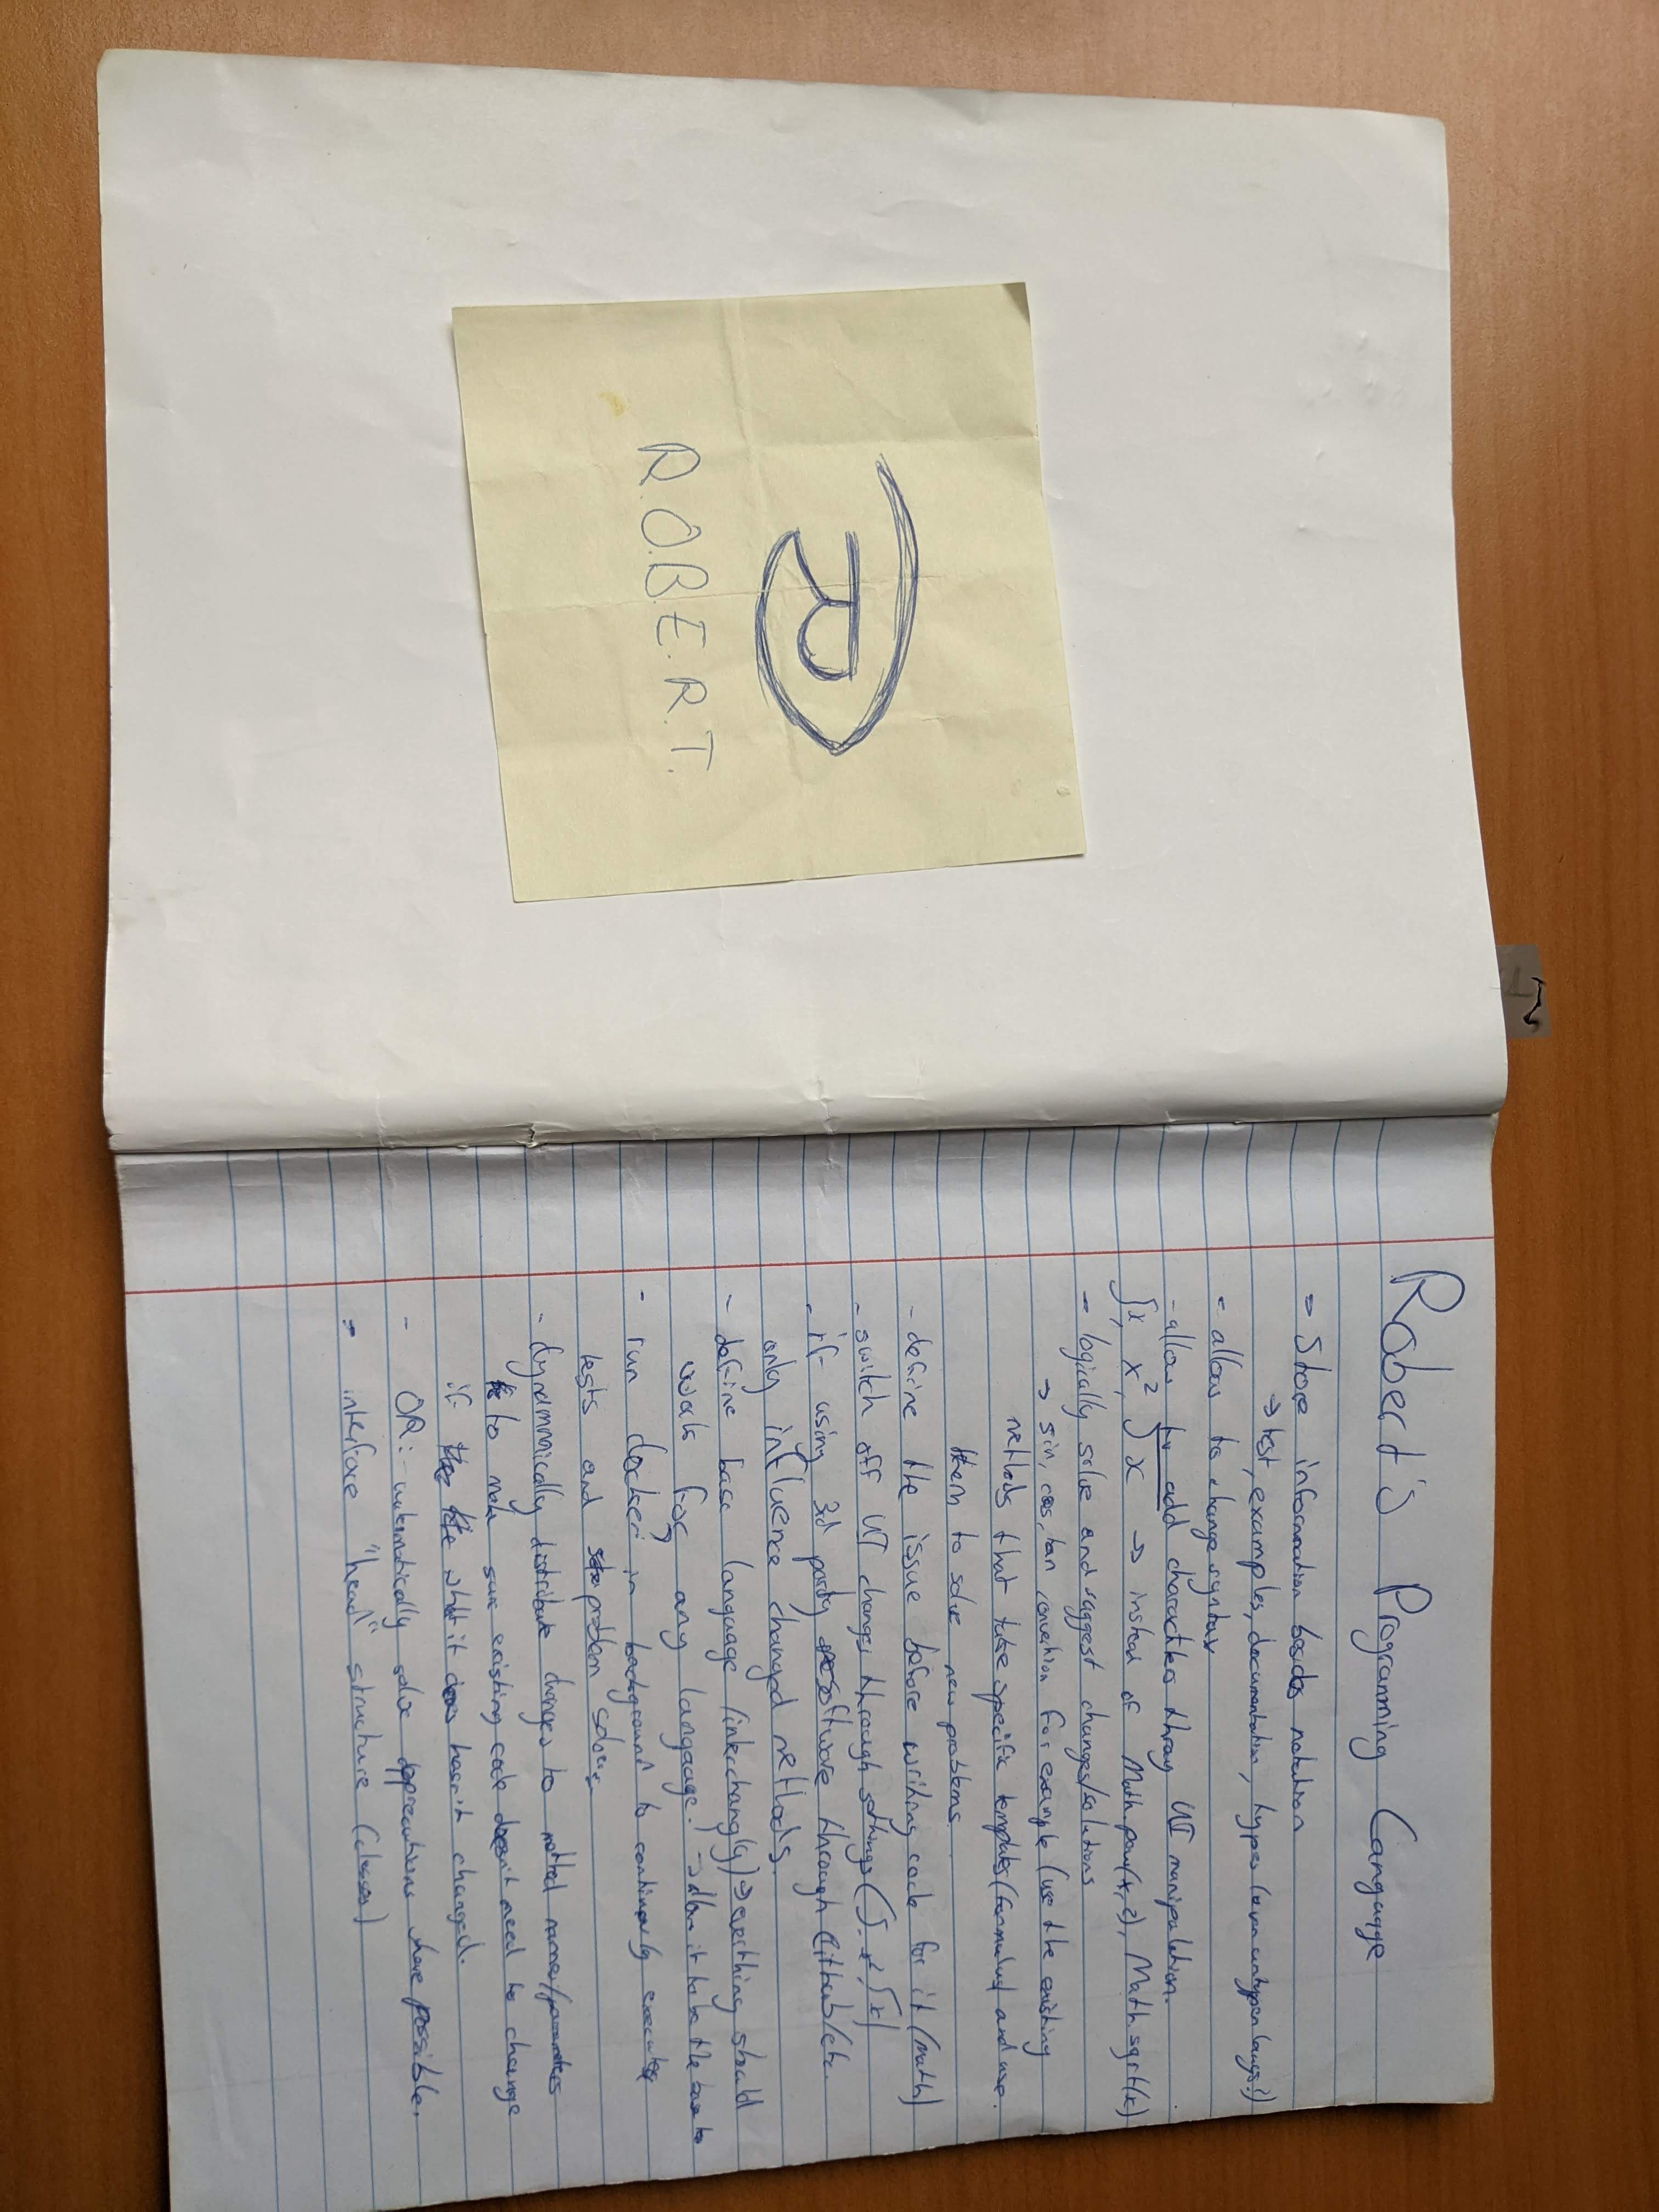 R
R.O.B.E.R.T.
Robert's Programming Language
⇒ Store information besides notation
→ test, examples, documentation, types (even untypen langs!)
- allow to change syntax
- allow to add characters throug UI manipulation.
√x, x², ∫x → instead of Math.pow(x,2), Math.sqrt(x)
- logically solve and suggest changes/solutions
→ sin, cos, tan convertion for example (use the existing
methods that take specific templates (formulas) and use
them to solve new problems.
- define the issue before writing code for it (math)
- switch off UI changes through settings
- if using 3rd party software through Github/etc.
only influence changed methods.
- define base language → everithing should
work for any language! → allow it to be the base to
- run docker in background to continuously execute
tests and problem solver
- dynammically distribute changes to method names/parameters
to make sure existing code doesn't need to change
if what it does hasn't changed.
- OR: automatically solve deprecations where possible.
- interface "head" structure (classes)